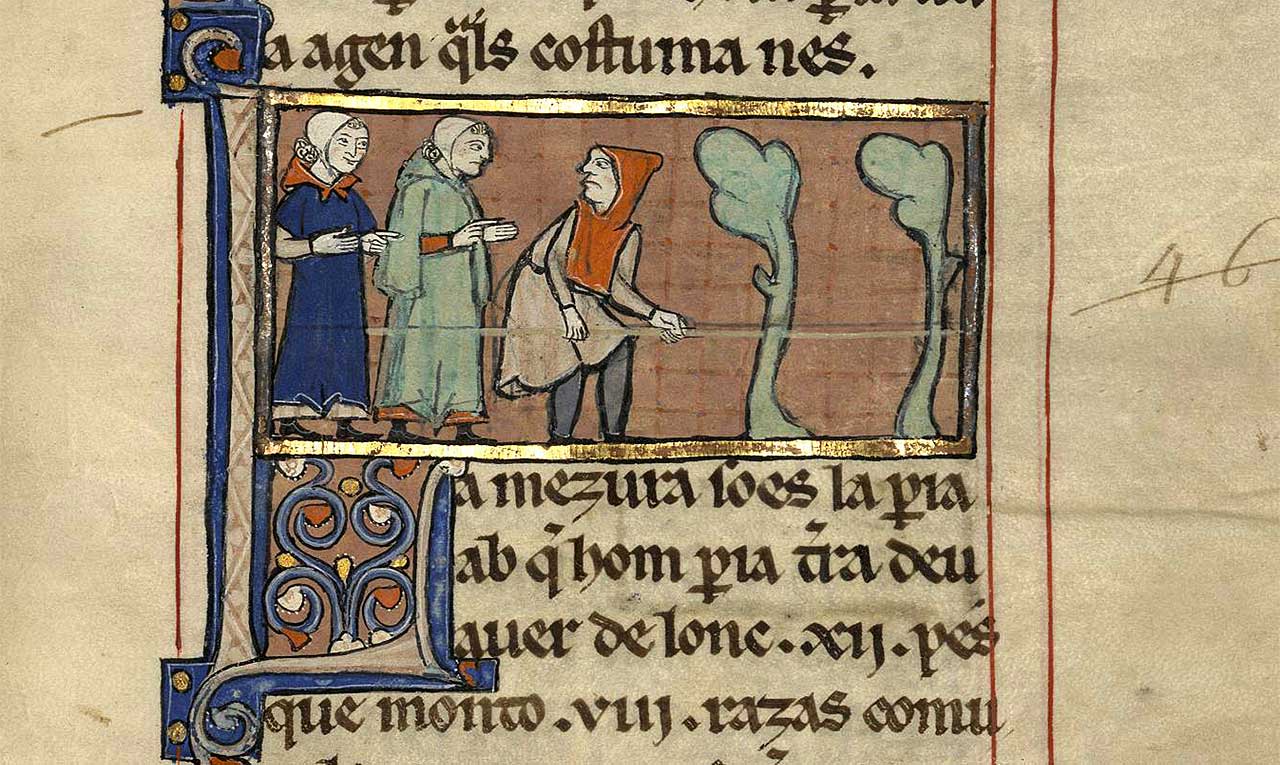 a agen q̃ls costuma nes.
46
La mezura so es la ꝑia
ab q̃ hom ꝑia t̃ra deu
auer de lonc .xij. pes
que monto .viij. razas comu